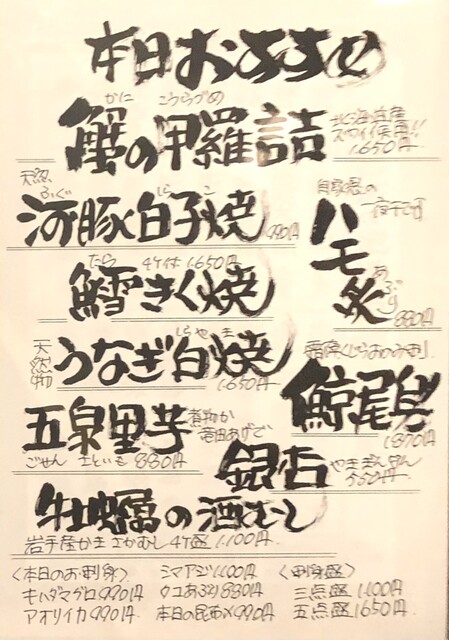 本日おすすめ
かに こうらづめ
蟹の甲羅詰
北海道産
ズワイ蟹使用!!
1.650円
天然
ふぐ しらこ
河豚白子焼 990円
自家製の
一夜干です
ハモ炙
あぶり
880円
たら 4ケ付 1.650円
鱈きく焼
天然物
しらやき
うなぎ白焼
1.650円
霜降くじらおのみ刺
鯨尾身
1.870円
五泉里芋
煮物か
唐田あげで
ごせん さといも 880円
銀杏
やきぎんなん
550円
牡蠣の酒むし
岩手産かき さかむし 4ケ盛 1.100円
〈本日のお刺身〉
キハダマグロ 990円
アオリイカ 990円
シマアジ 1.100円
タコあぶり 880円
本日の昆布〆 990円
〈刺身盛〉
三点盛 1.100円
五点盛 1.650円